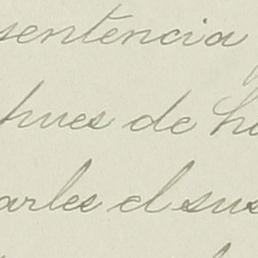 sentencia
hues de ha
arles el sus